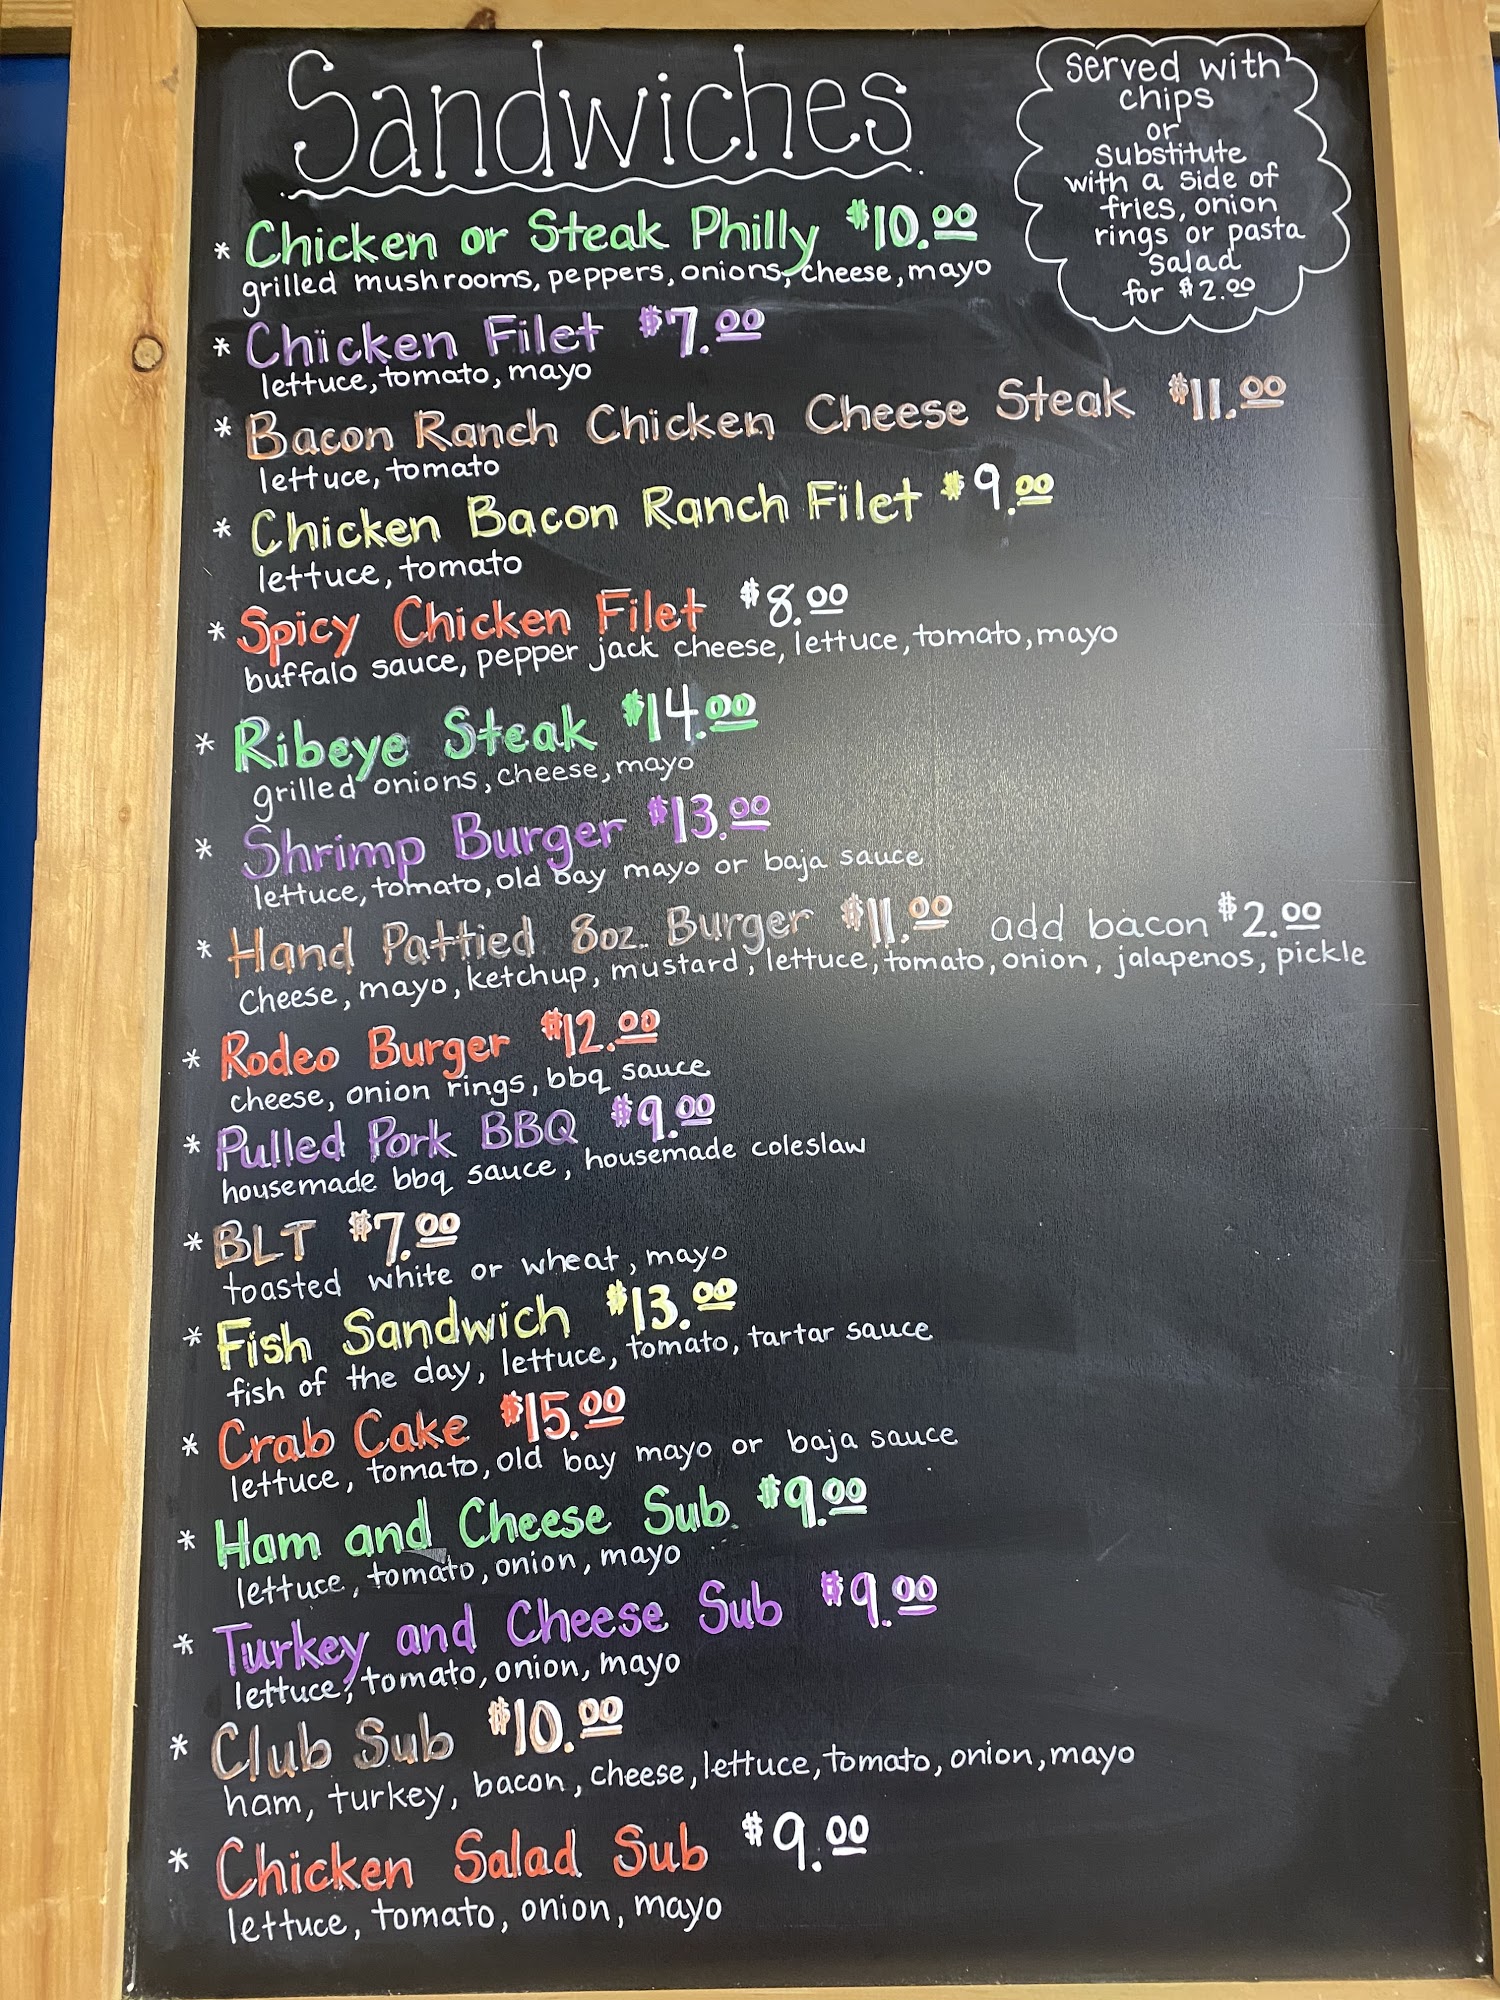 Sandwiches
served with
chips
or
substitute
with a side of
fries, onion
rings or pasta
salad
for $2.00
* Chicken or Steak Philly $10.00
grilled mushrooms, peppers, onions, cheese, mayo
* Chicken Filet $7.00
lettuce, tomato, mayo
* Bacon Ranch Chicken Cheese Steak $11.00
lettuce, tomato
* Chicken Bacon Ranch Filet $9.00
lettuce, tomato
* Spicy Chicken Filet $8.00
buffalo sauce, pepper jack cheese, lettuce, tomato, mayo
* Ribeye Steak $14.00
grilled onions, cheese, mayo
* Shrimp Burger $13.00
lettuce, tomato, old bay mayo or baja sauce
* Hand Pattied 8oz. Burger $11.00 add bacon $2.00
cheese, mayo, ketchup, mustard, lettuce, tomato, onion, jalapenos, pickle
* Rodeo Burger $12.00
cheese, onion rings, bbq sauce
* Pulled Pork BBQ $9.00
housemade bbq sauce, housemade coleslaw
* BLT $7.00
toasted white or wheat, mayo
* Fish Sandwich $13.00
fish of the day, lettuce, tomato, tartar sauce
* Crab Cake $15.00
lettuce, tomato, old bay mayo or baja sauce
* Ham and Cheese Sub $9.00
lettuce, tomato, onion, mayo
* Turkey and Cheese Sub $9.00
lettuce, tomato, onion, mayo
* Club Sub $10.00
ham, turkey, bacon, cheese, lettuce, tomato, onion, mayo
* Chicken Salad Sub $9.00
lettuce, tomato, onion, mayo